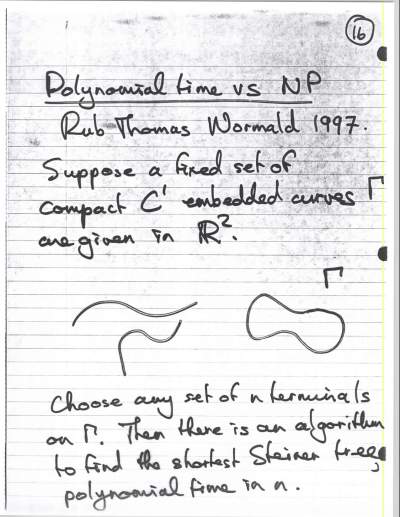 16
Polynomial time vs NP
Rub Thomas Wormald 1997.
Suppose a fixed set of
compact C¹ embedded curves Γ
are given in ℝ².
Γ
Choose any set of n terminals
on Γ. Then there is an algorithm
to find the shortest Steiner tree,
polynomial time in n.